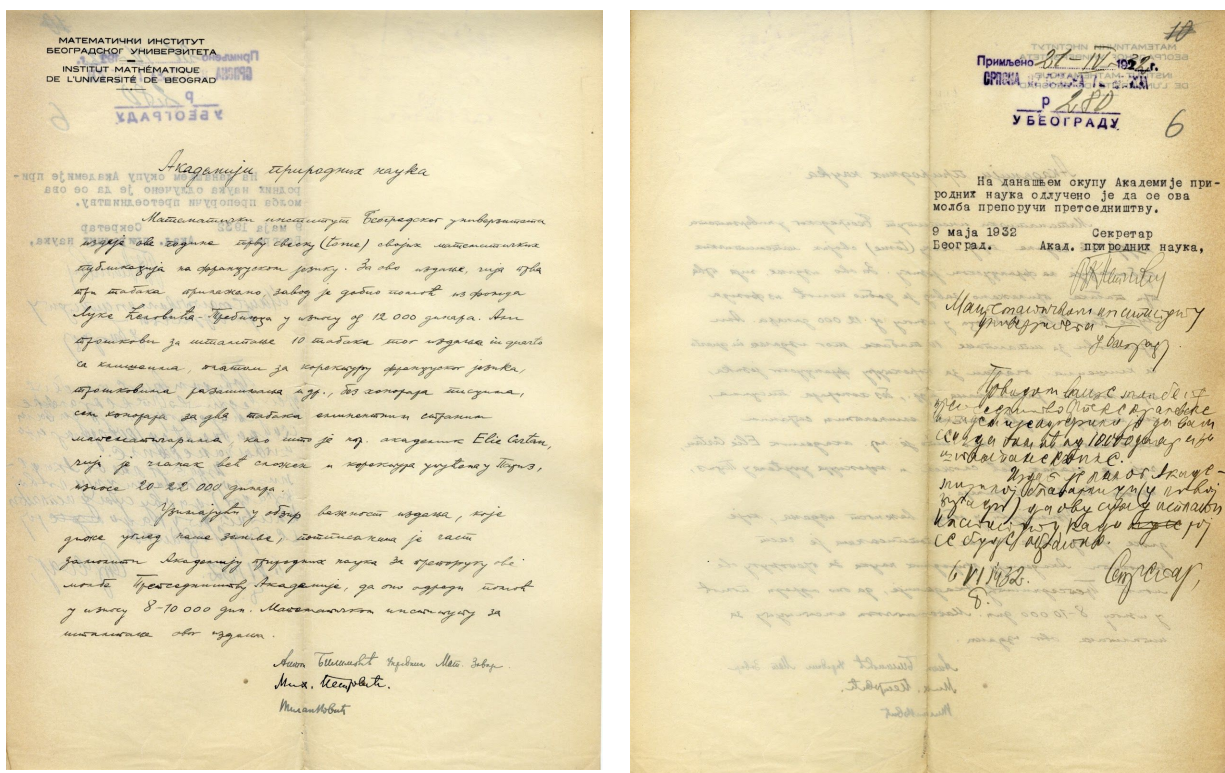 МАТЕМАТИЧКИ ИНСТИТУТ
БЕОГРАДСКОГ УНИВЕРЗИТЕТА
INSTITUT MATHÉMATIQUE
DE L'UNIVERSITÉ DE BEOGRAD
Академији природних наука
Математички институт Београдског универзитета
издаје ове године прву свеску (tome) својих математичких
публикација на француском језику. За ово издање, чија прва
три табака прилажемо, завод је добио помоћ из фонда
Луке Ћеловића-Требињца у износу од 12 000 динара. Али
трошкови за штампање 10 табака тог издања
са клишеима, платом за коректуру француског језика,
трошковима разашиљања и др., без хонорара писцима,
сем хонорара за два табака еминентним страним
математичарима као што је нпр. академик Elie Cartan,
чији је чланак већ сложен и коректура упућена у Париз,
износе 20-22 000 динара.
Узимајући у обзир важност издања, које
диже углед наше земље, потписанима је част
замолити Академију природних наука за препоруку ове
молбе Претседништву Академије, да оно одреди помоћ
у износу 8-10 000 дин. Математичком институту за
штампање овог издања.
Антон Билимовић управник Мат. Завода
Мих. Петровић.
Миланковић
10
Примљено 21-IV-1932 г.
СРПСКА
Р 280
У БЕОГРАДУ
6
На данашњем скупу Академије при-
родних наука одлучено је да се ова
молба препоручи претседништву.
9 маја 1932 Секретар
Београд. Акад. природних наука,
Математичком институту
Универзитета
у Београду
Поводом Ваше молбе
6 VI 1932. Секретар,